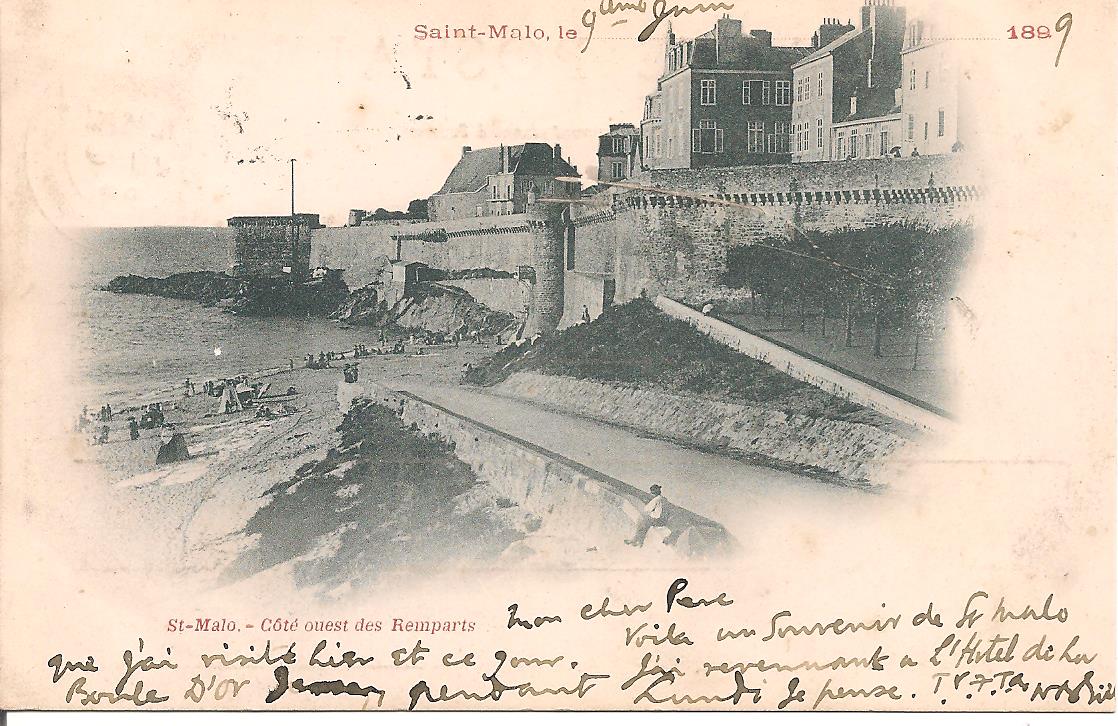 Saint-Malo, le 9ème Juin 1899
St-Malo. - Côté ouest des Remparts
Mon cher Pere
Voila un Souvenir de St Malo
que j'ai visité hier et ce jour. J'ai revennant a L'Hotel de la
Boule D'Or Jersey pendant Lundi Je pense.